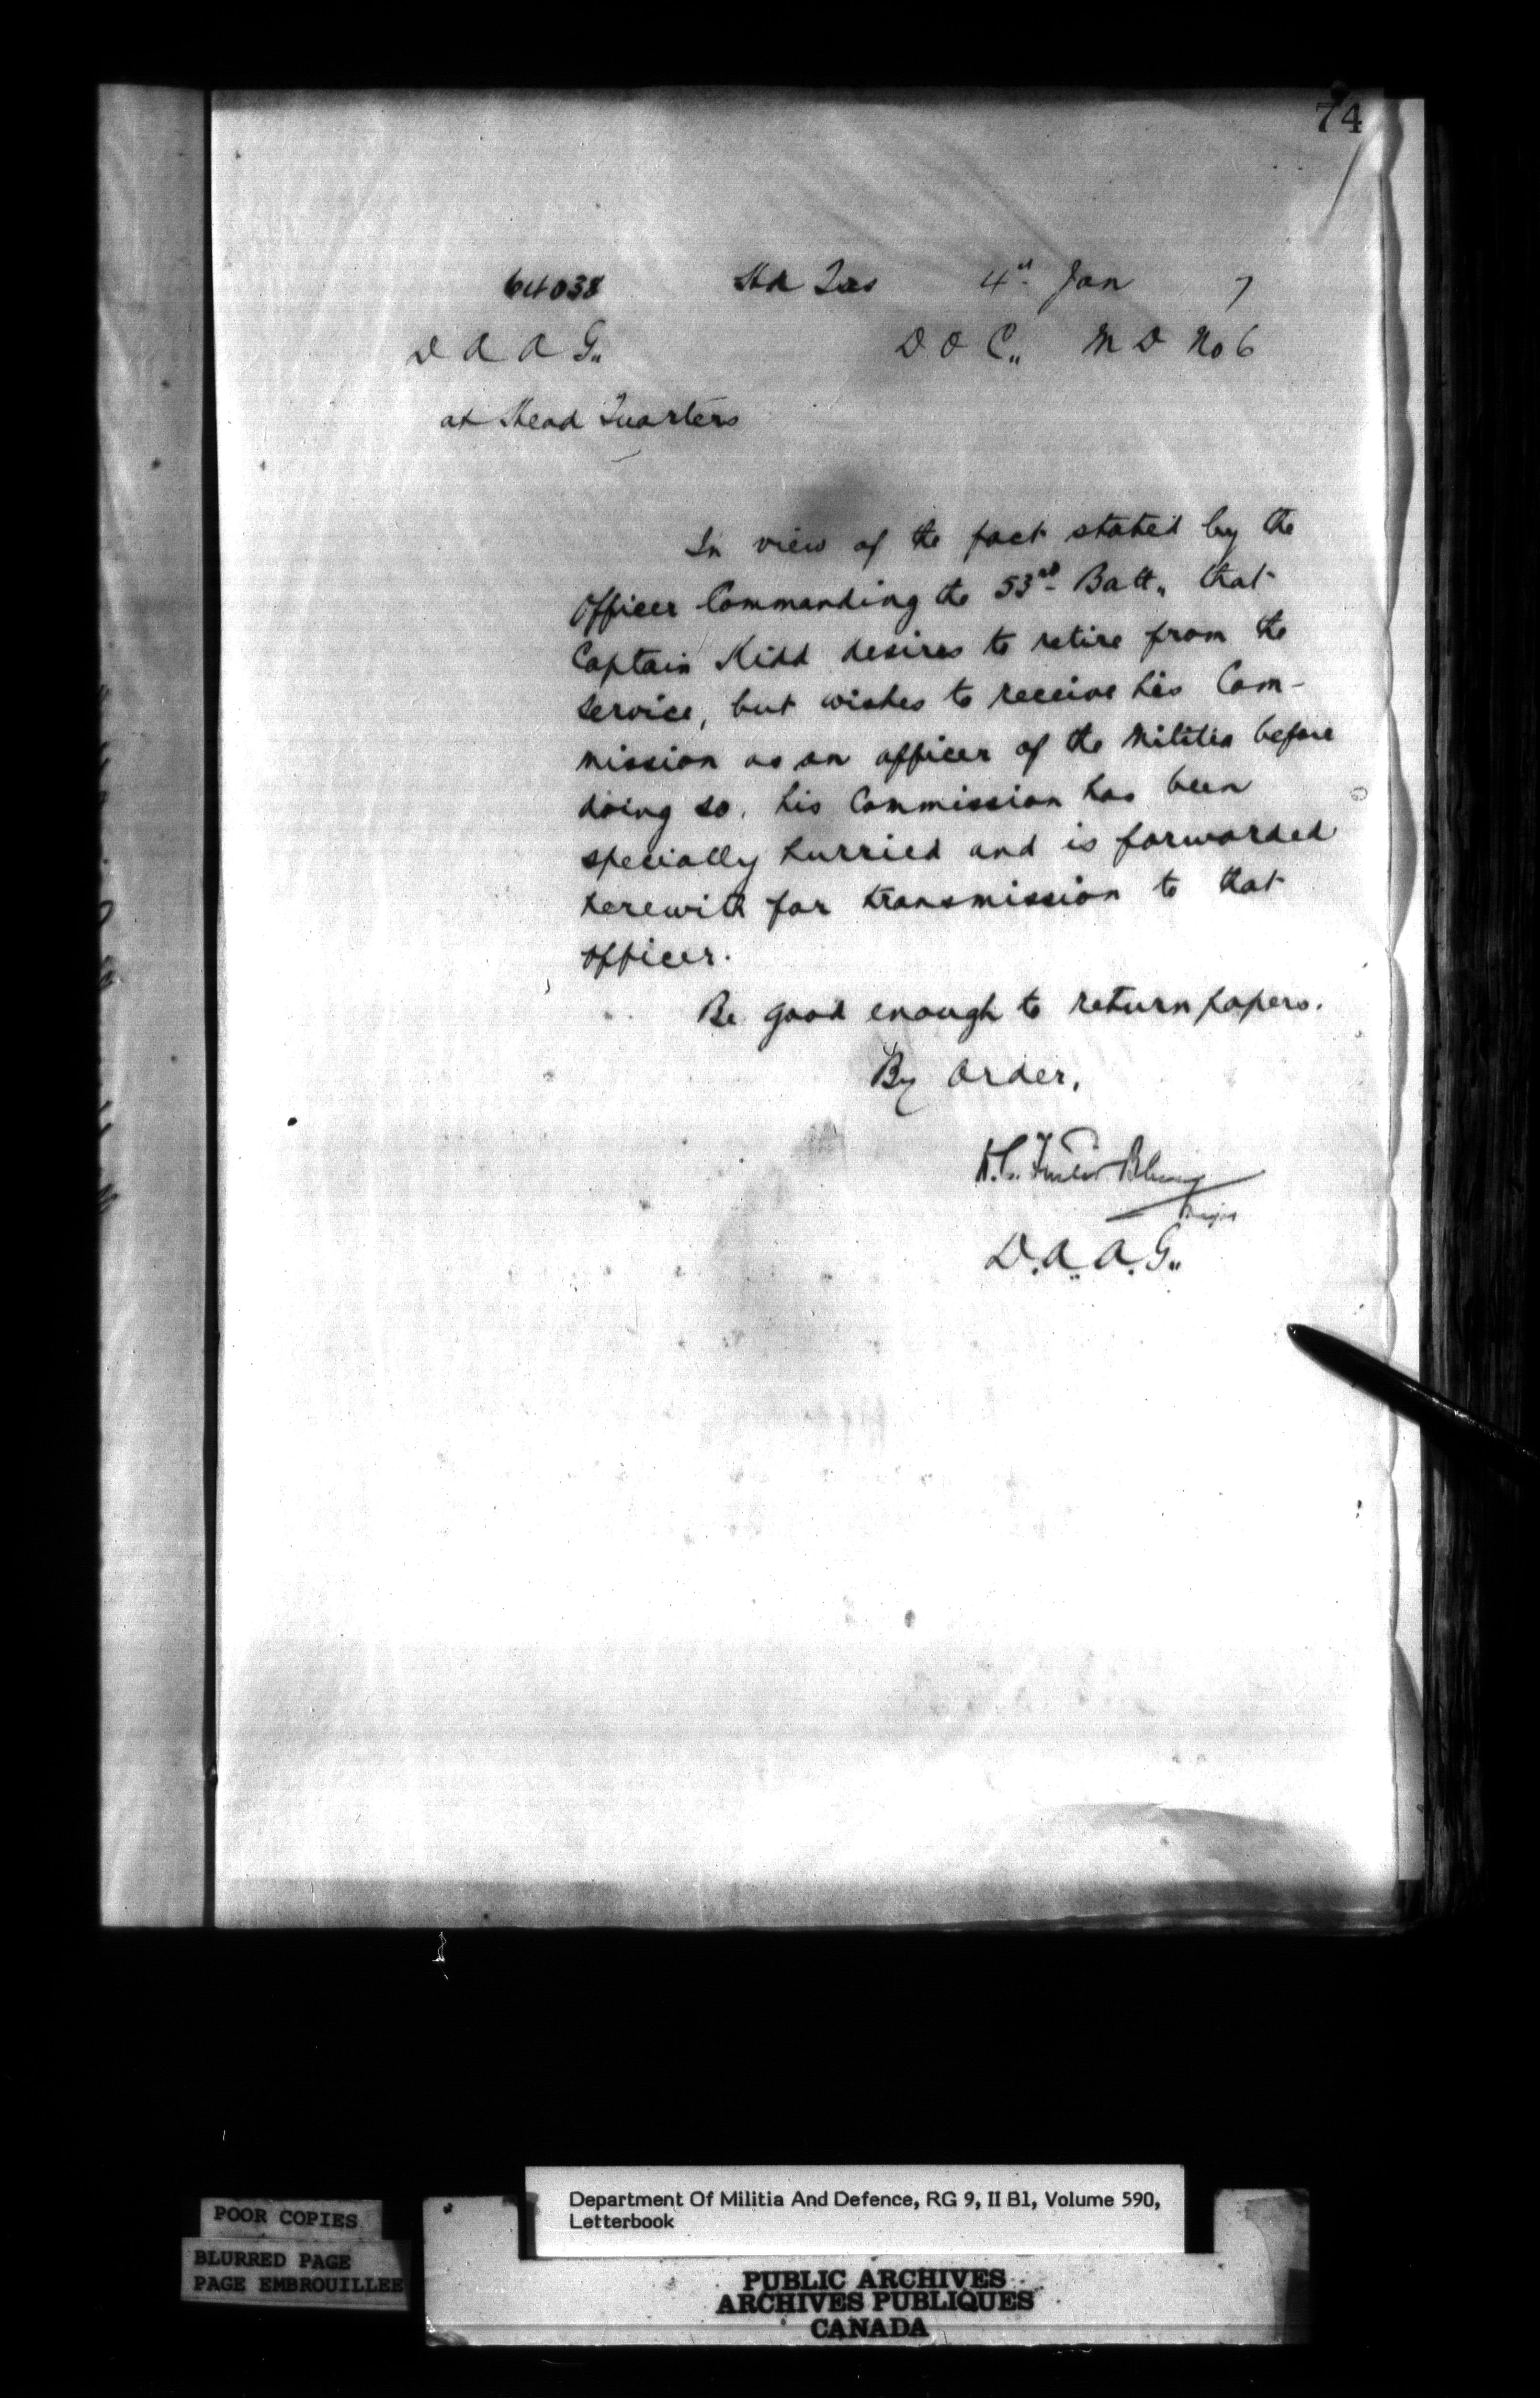 74
64038 Hd Qrs 4th Jan 7
D A A G.,
D O C., M D No 6
at Head Quarters
In view of the fact stated by the
Officer Commanding the 53rd Batt., that
Captain Kidd desires to retire from the
service, but wishes to receive his Com-
mission as an officer of the Militia before
doing so, his Commission has been
specially hurried and is forwarded
herewith for transmission to that
officer.
Be good enough to return papers.
By order,
Major
D.A.A.G.,
POOR COPIES
BLURRED PAGE
PAGE EMBROUILLEE
Department Of Militia And Defence, RG 9, II B1, Volume 590,
Letterbook
PUBLIC ARCHIVES
ARCHIVES PUBLIQUES
CANADA